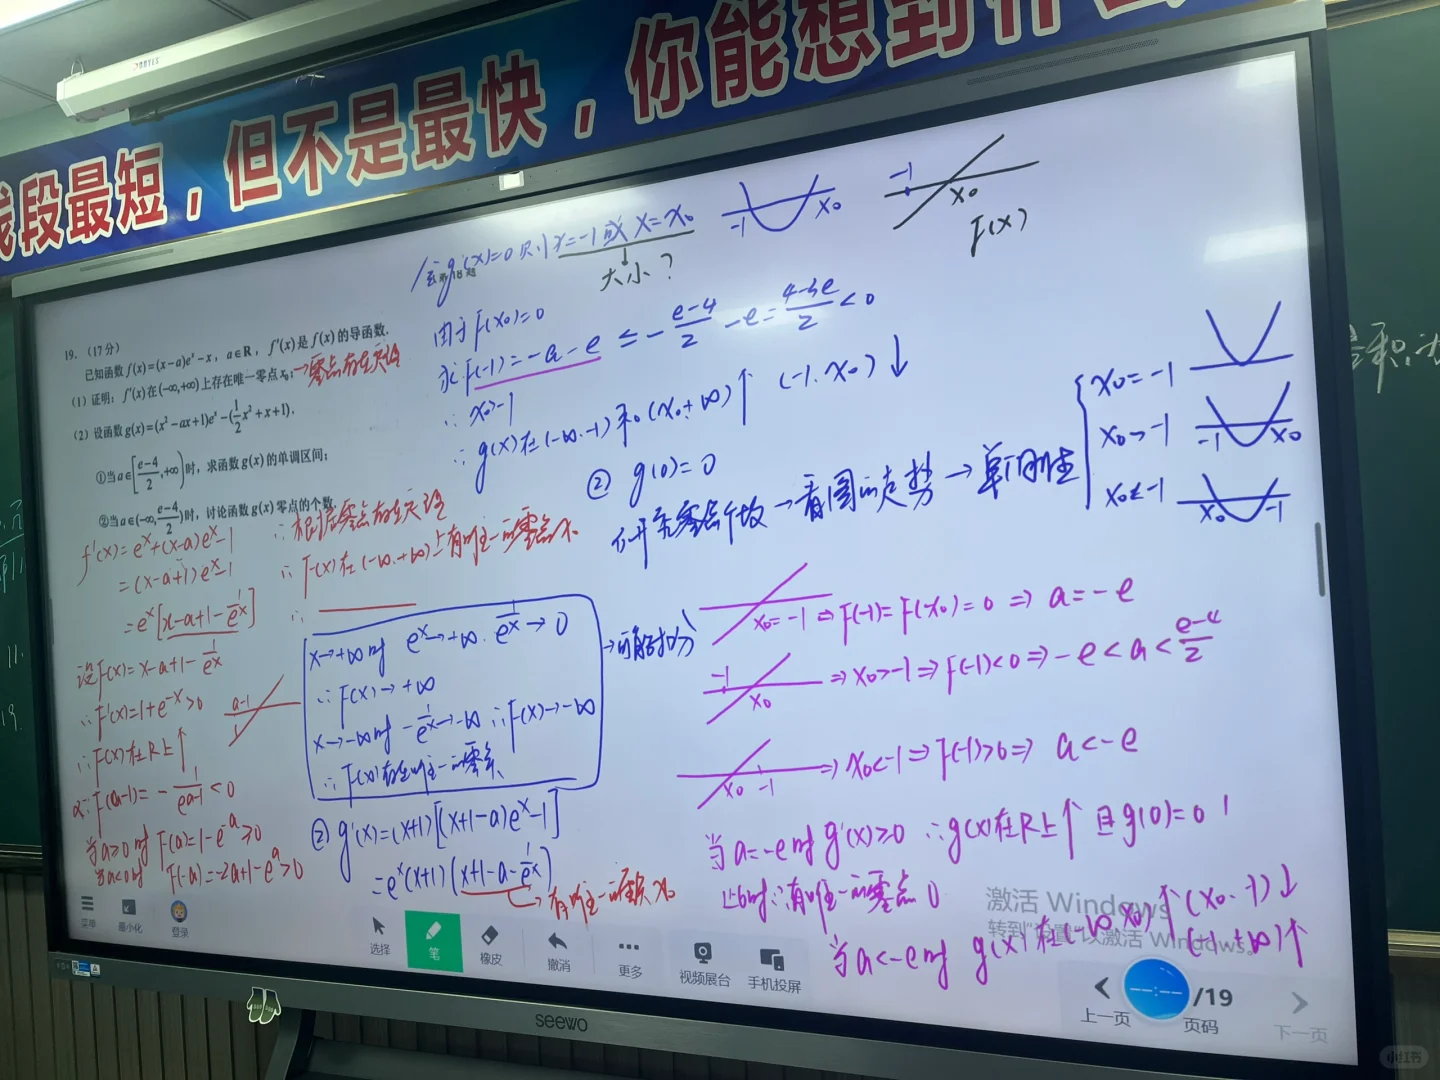 线段最短，但不是最快，你能想到什么
19.（17分）
已知函数f(x)=(x-a)eˣ-x，a∈R，f′(x)是f(x)的导函数.
（1）证明：f′(x)在(-∞,+∞)上存在唯一零点x₀；→零点存在定理
（2）设函数g(x)=(x²-ax+1)eˣ-(1/2x²+x+1).
①当a∈[e-4/2,+∞)时，求函数g(x)的单调区间；
②当a∈(-∞,e-4/2)时，讨论函数g(x)零点的个数.
f′(x)=eˣ+(x-a)eˣ-1
=(x-a+1)eˣ-1
=eˣ[x-a+1-1/eˣ]
设F(x)=x-a+1-1/eˣ
∴F′(x)=1+e⁻ˣ>0
∴F(x)在R上↑
a-1
又∵F(a-1)=-1/eᵃ⁻¹<0
当a≥0时 F(a)=1-e⁻ᵃ≥0
当a<0时 F(-a)=-2a+1-eᵃ>0
∴根据零点存在定理
∴F(x)在(-∞,+∞)上有唯一的零点x₀
∴
x→+∞时 eˣ→+∞, 1/eˣ→0
∴F(x)→+∞
x→-∞时 -1/eˣ→-∞ ∴F(x)→-∞
∴F(x)存在唯一的零点
→可能扣分
② g′(x)=(x+1)[(x+1-a)eˣ-1]
=eˣ(x+1)(x+1-a-1/eˣ)
→有唯一的零点x₀
令g′(x)=0则x=-1或x=x₀
大小？
-1 x₀
-1 x₀
F(x)
由于F(x₀)=0
求F(-1)=-a-e≤-e-4/2-e=4-3e/2<0
∴x₀>-1
∴g(x)在(-∞,-1)和(x₀,+∞)↑ (-1,x₀)↓
② g(0)=0
研究零点个数→看图的走势→单调性
x₀=-1
x₀>-1
-1 x₀
x₀<-1
x₀ -1
x₀=-1⇒F(-1)=F(x₀)=0⇒a=-e
-1 x₀ ⇒x₀>-1⇒F(-1)<0⇒-e<a<e-4/2
x₀ -1 ⇒x₀<-1⇒F(-1)>0⇒a<-e
当a=-e时g′(x)≥0 ∴g(x)在R上↑且g(0)=0
此时∴有唯一的零点0
当a<-e时 g(x)在(-∞,x₀)↑(x₀,-1)↓
(-1,+∞)↑
激活 Windows
转到"设置"以激活 Windows。
菜单
最小化
登录
选择
笔
橡皮
撤消
更多
视频展台
手机投屏
上一页
/19
页码
下一页
seewo
小红书